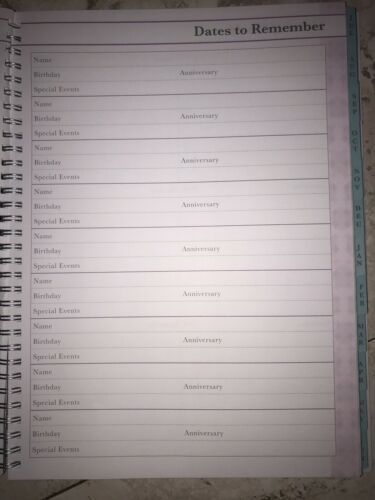 Dates to Remember
Name
Birthday Anniversary
Special Events
Name
Birthday Anniversary
Special Events
Name
Birthday Anniversary
Special Events
Name
Birthday Anniversary
Special Events
Name
Birthday Anniversary
Special Events
Name
Birthday Anniversary
Special Events
Name
Birthday Anniversary
Special Events
Name
Birthday Anniversary
Special Events
Name
Birthday Anniversary
Special Events
AUG
SEP
OCT
NOV
DEC
JAN
FEB
MAR
APR